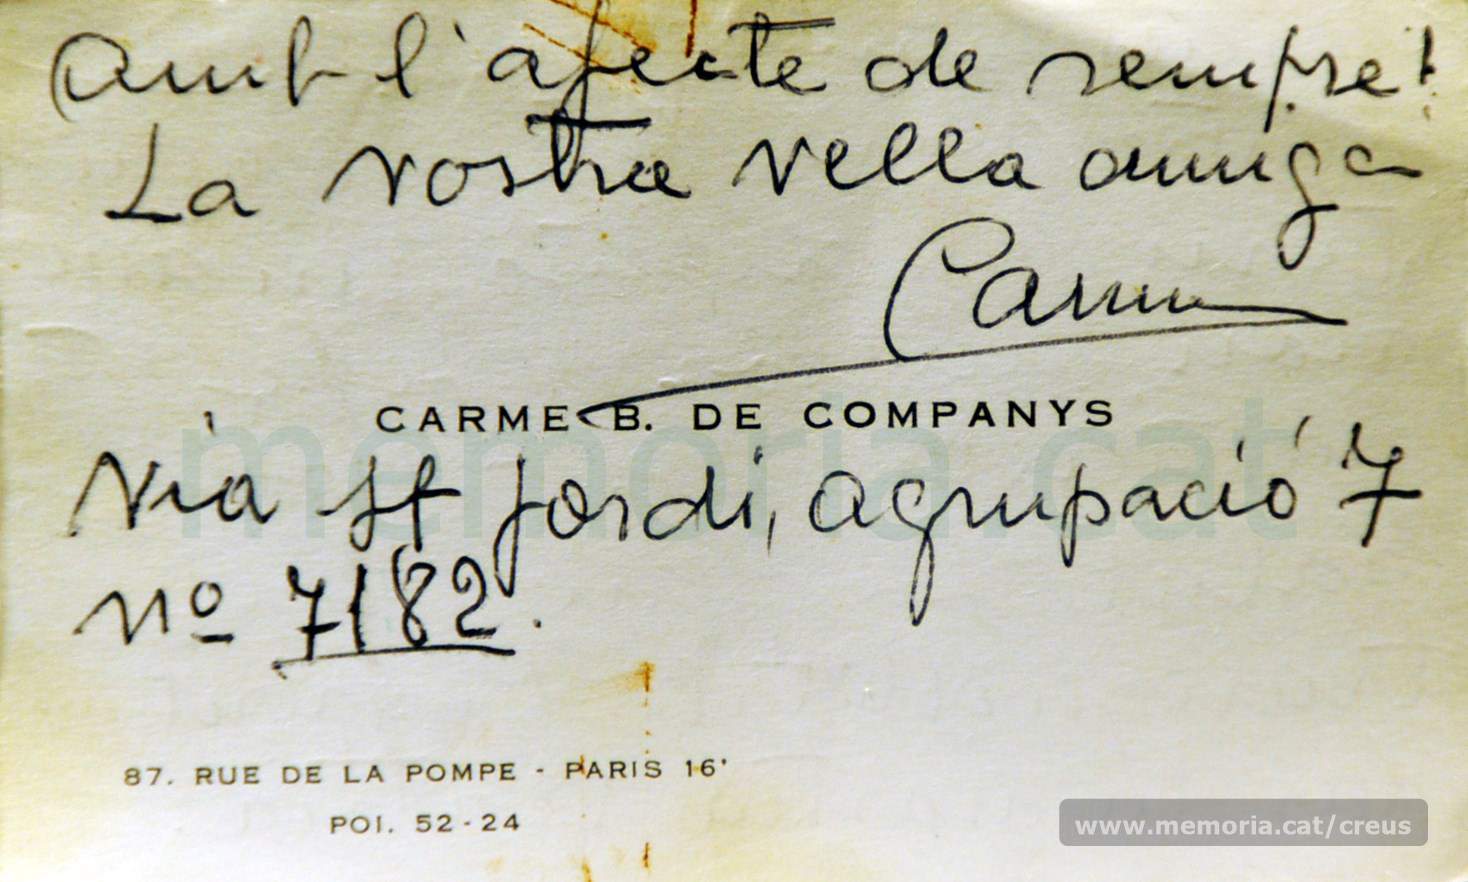 amb l'afecte de sempre!
La vostra vella amiga
Carme
CARME B. DE COMPANYS
Via St Jordi, agrupació 7
nº 7182.
87. RUE DE LA POMPE - PARIS 16'
POI. 52-24
memoria.cat
www.memoria.cat/creus